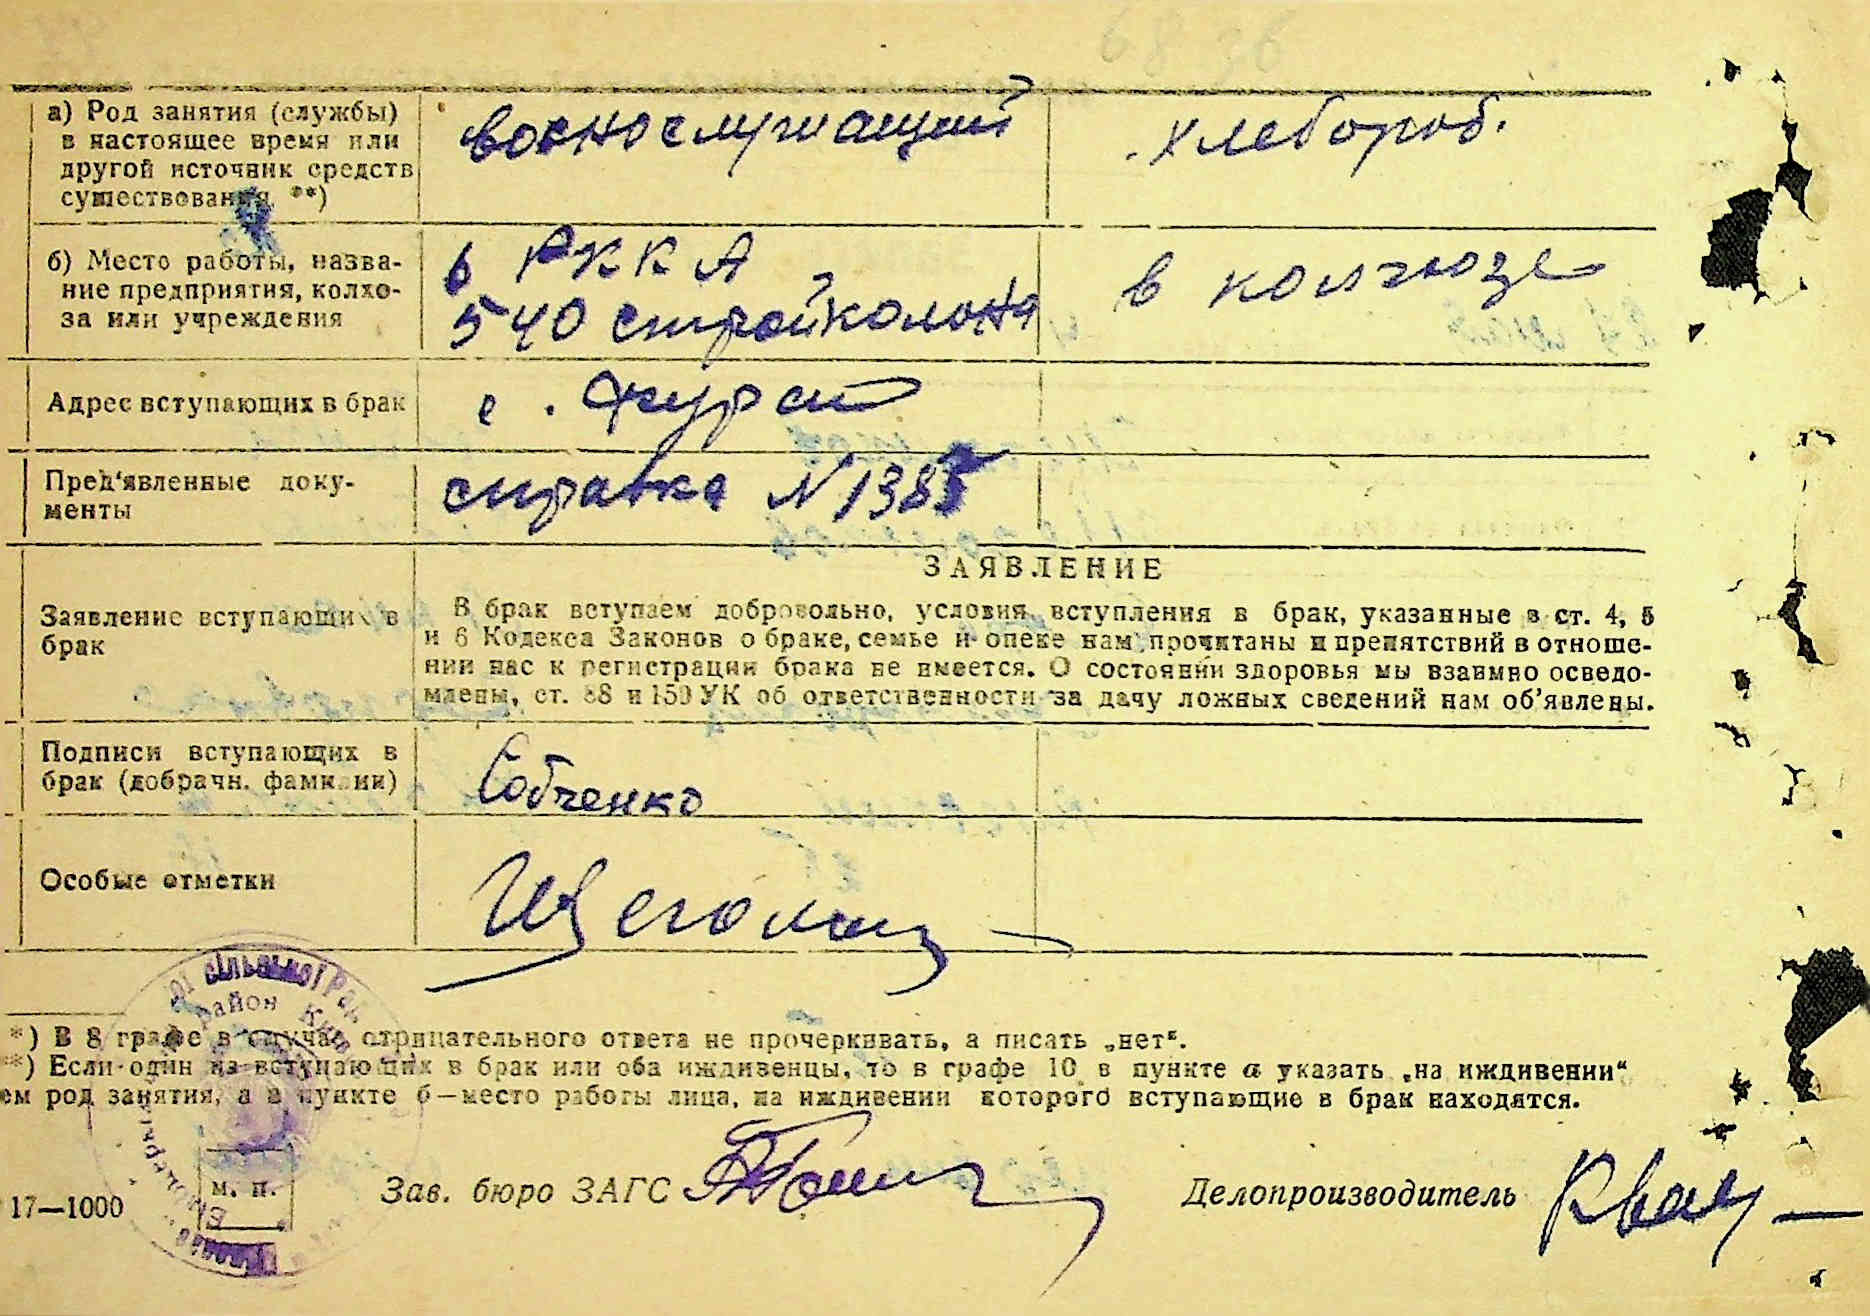 а) Род занятия (службы) в настоящее время или другой источник средств существования **)
военнослужащий
хлебороб.
б) Место работы, название предприятия, колхоза или учреждения
в РККА
540 стройколона
в колгозе
Адрес вступающих в брак
с.
Пред'явленные документы
справка N 1385
ЗАЯВЛЕНИЕ
Заявление вступающих в брак
В брак вступаем добровольно, условия вступления в брак, указанные в ст. 4, 5
и 6 Кодекса Законов о браке, семье и опеке нам прочитаны и препятствий в отноше-
нии нас к регистрации брака не имеется. О состоянии здоровья мы взаимно осведо-
млены, ст. 88 и 159 УК об ответственности за дачу ложных сведений нам об'явлены.
Подписи вступающих в брак (добрачн. фамилии)
Собченко
Особые отметки
Щеголь
*) В 8 графе в случае отрицательного ответа не прочеркивать, а писать „нет".
**) Если один из вступающих в брак или оба иждивенцы, то в графе 10 в пункте а указать „на иждивении"
ем род занятия, а в пункте б—место работы лица, на иждивении которого вступающие в брак находятся.
сільської Рад
район
м. п.
17—1000
Зав. бюро ЗАГС
Делопроизводитель